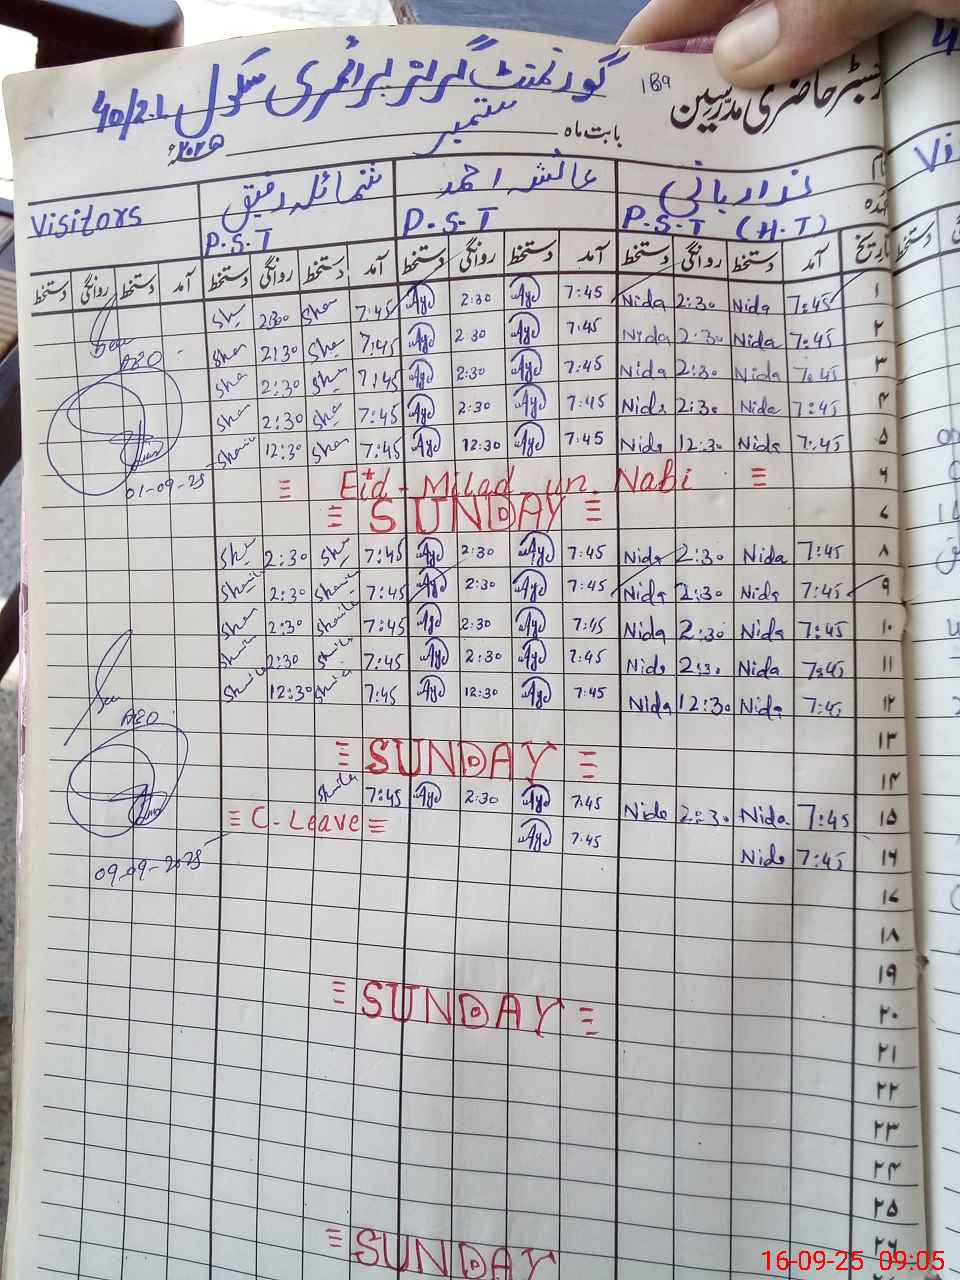 رجسٹر حاضری مدرسین 189 گورنمنٹ گرلز پرائمری سکول 40/2.L
بابت ماہ ستمبر ۲۰۲۵ء
نام ندا ربانی عائشہ احمد شمائلہ رفیق Visitors
عہدہ P.S.T (H.T) P.S.T P.S.T
تاریخ آمد دستخط روانگی دستخط آمد دستخط روانگی دستخط آمد دستخط روانگی دستخط آمد دستخط روانگی دستخط
۱ 7:45 Nida 2:30 Nida 7:45 2:30 7:45 Sha 2:30 Sha
۲ 7:45 Nida 2:30 Nida 7:45 2:30 7:45 Sha 2:30 Sha
AEO
۳ 7:45 Nida 2:30 Nida 7:45 2:30 7:45 Sha 2:30 Sha
۴ 7:45 Nida 2:30 Nida 7:45 2:30 7:45 Sha 2:30 Sha
۵ 7:45 Nida 12:30 Nida 7:45 12:30 7:45 Sha 12:30 Sha
01-09-25
۶ Eid-Milad un Nabi
۷ SUNDAY
۸ 7:45 Nida 2:30 Nida 7:45 2:30 7:45 Sha 2:30 Sha
۹ 7:45 Nida 2:30 Nida 7:45 2:30 7:45 2:30
۱۰ 7:45 Nida 2:30 Nida 7:45 2:30 7:45 2:30 Sha
۱۱ 7:45 Nida 2:30 Nida 7:45 2:30 7:45 2:30
۱۲ 7:45 Nida 12:30 Nida 7:45 12:30 7:45 12:30
AEO
۱۳
۱۴ SUNDAY
۱۵ 7:45 Nida 2:30 Nida 7:45 2:30 7:45
۱۶ 7:45 Nida 7:45 C-Leave
09-09-2025
۱۷
۱۸
۱۹
۲۰ SUNDAY
۲۱
۲۲
۲۳
۲۴
۲۵
۲۶ SUNDAY
16-09-25 09:05